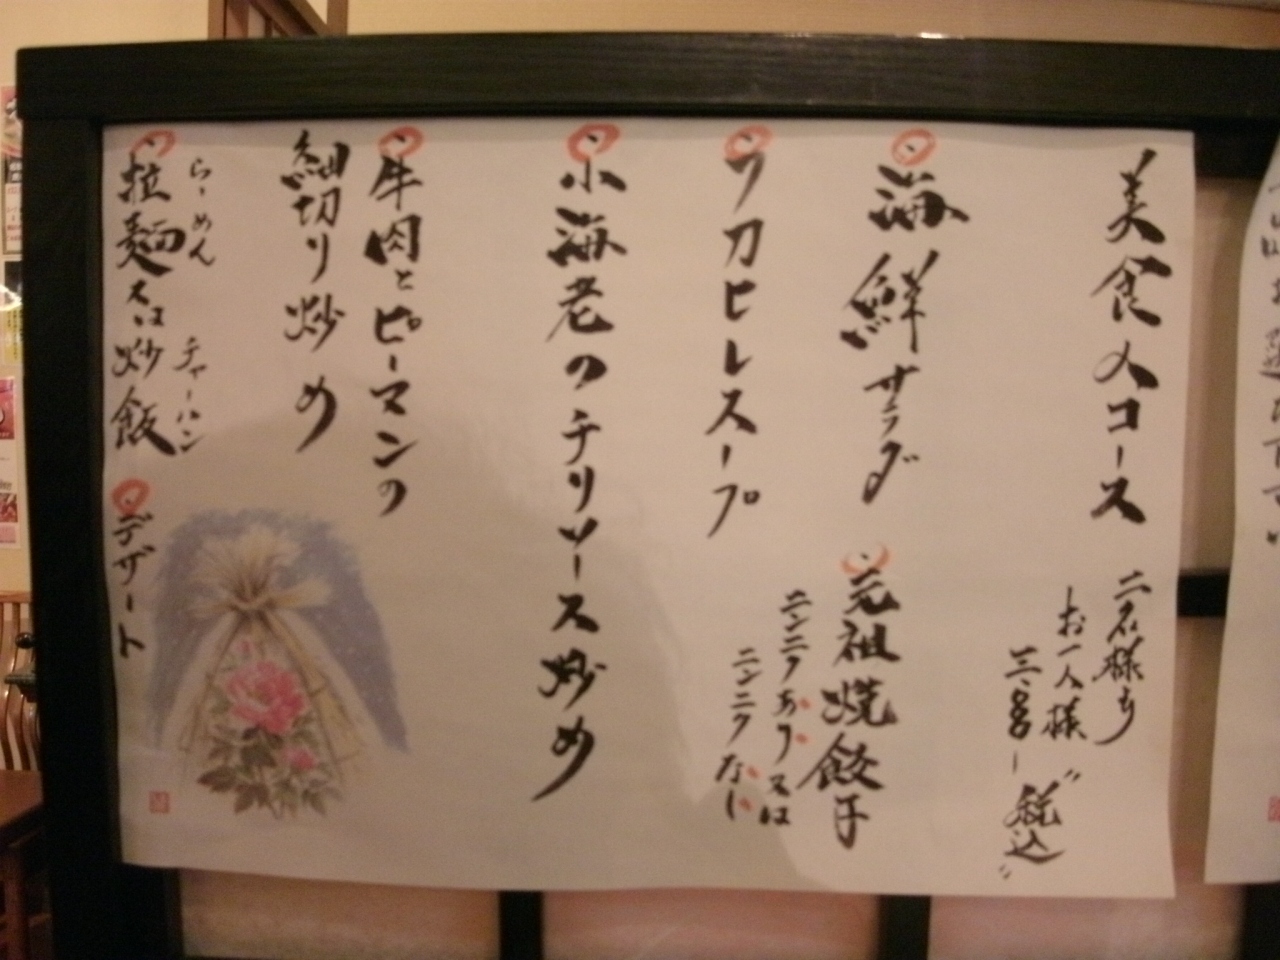 美食人コース
二名様より
お一人様
"税込"
海鮮サラダ
元祖焼餃子
ニンニクあり又は
ニンニクなし
フカヒレスープ
小海老のチリソース炒め
牛肉とピーマンの
細切り炒め
らーめん チャーハン
拉麺又は炒飯
デザート